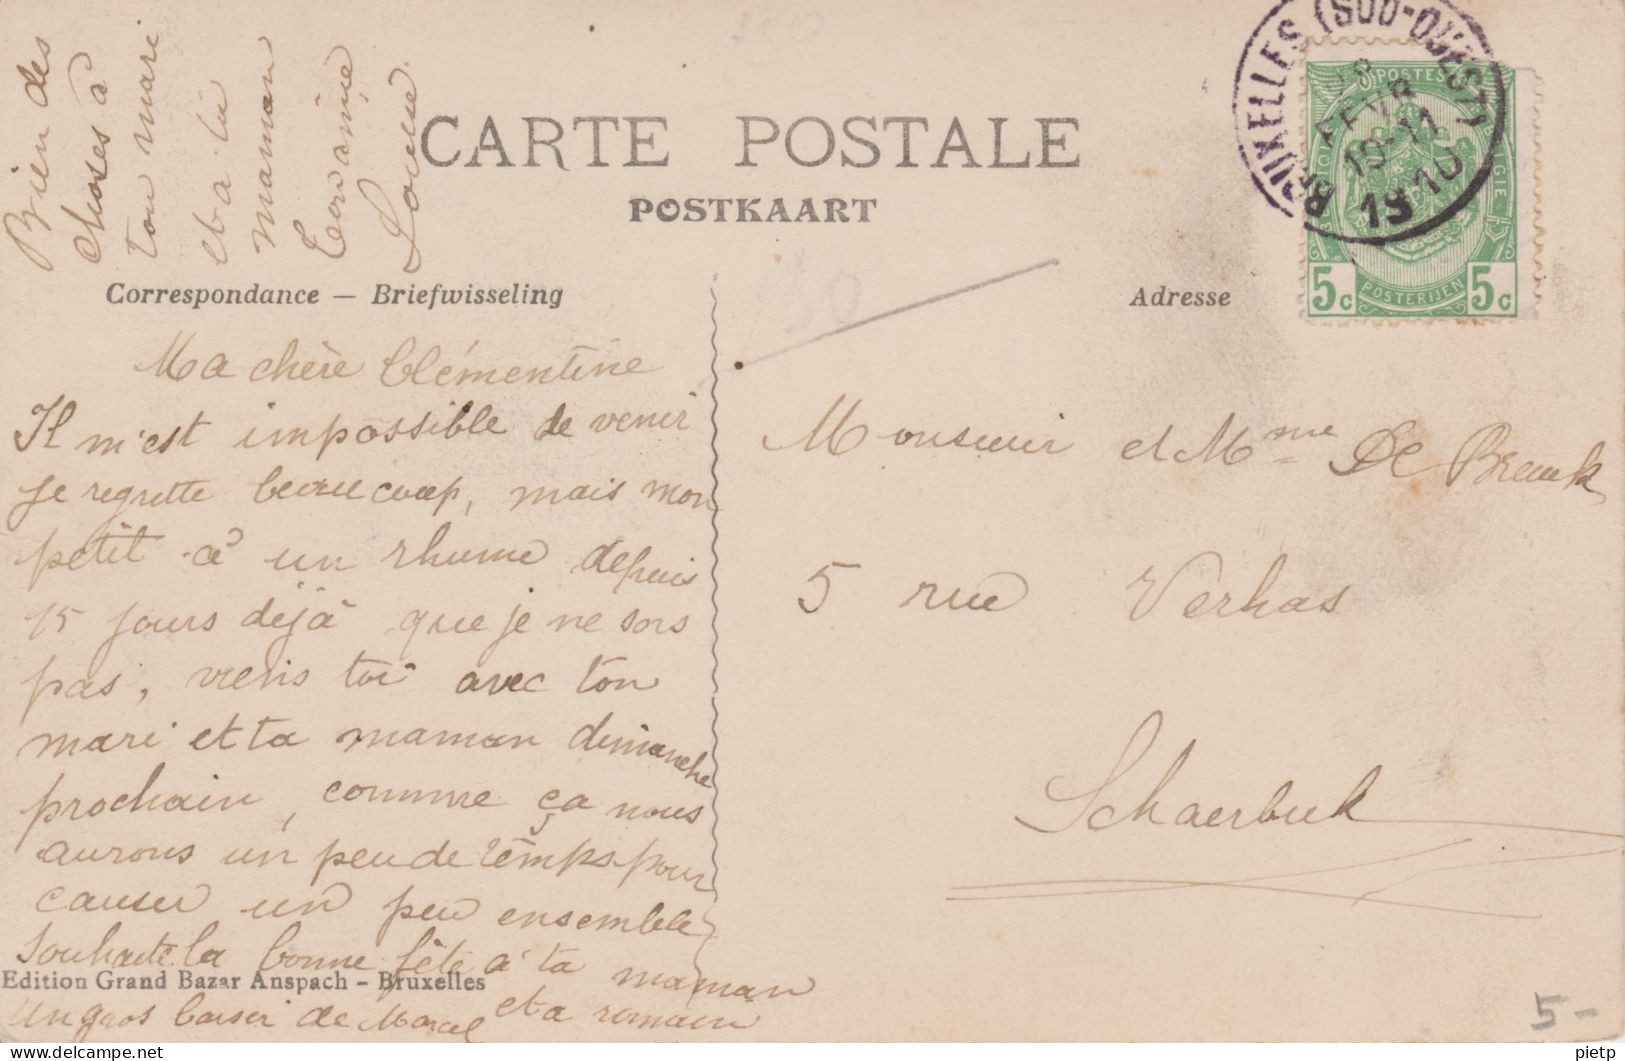 Bien des
choses à
ton mari
et a ta
maman
Ton amie
Louise
CARTE POSTALE
POSTKAART
Correspondance — Briefwisseling
Adresse
BRUXELLES (SUD-OUEST)
FEVR
10-11
1910
POSTES
POSTERIJEN
5c 5c
Ma chère Clémentine
Il m'est impossible de venir
je regrette beaucoup, mais mon
petit à un rhume depuis
15 jours déjà que je ne sors
pas, viens toi avec ton
mari et ta maman dimanche
prochain, comme ça nous
aurons un peu de temps pour
causer un peu ensemble
Souhaite la bonne fête a ta maman
et a romain
Un gros baiser de Marcel
Edition Grand Bazar Anspach - Bruxelles
Monsieur et Mme De Breuck
5 rue Verhas
Schaerbeek
5 -
pietp